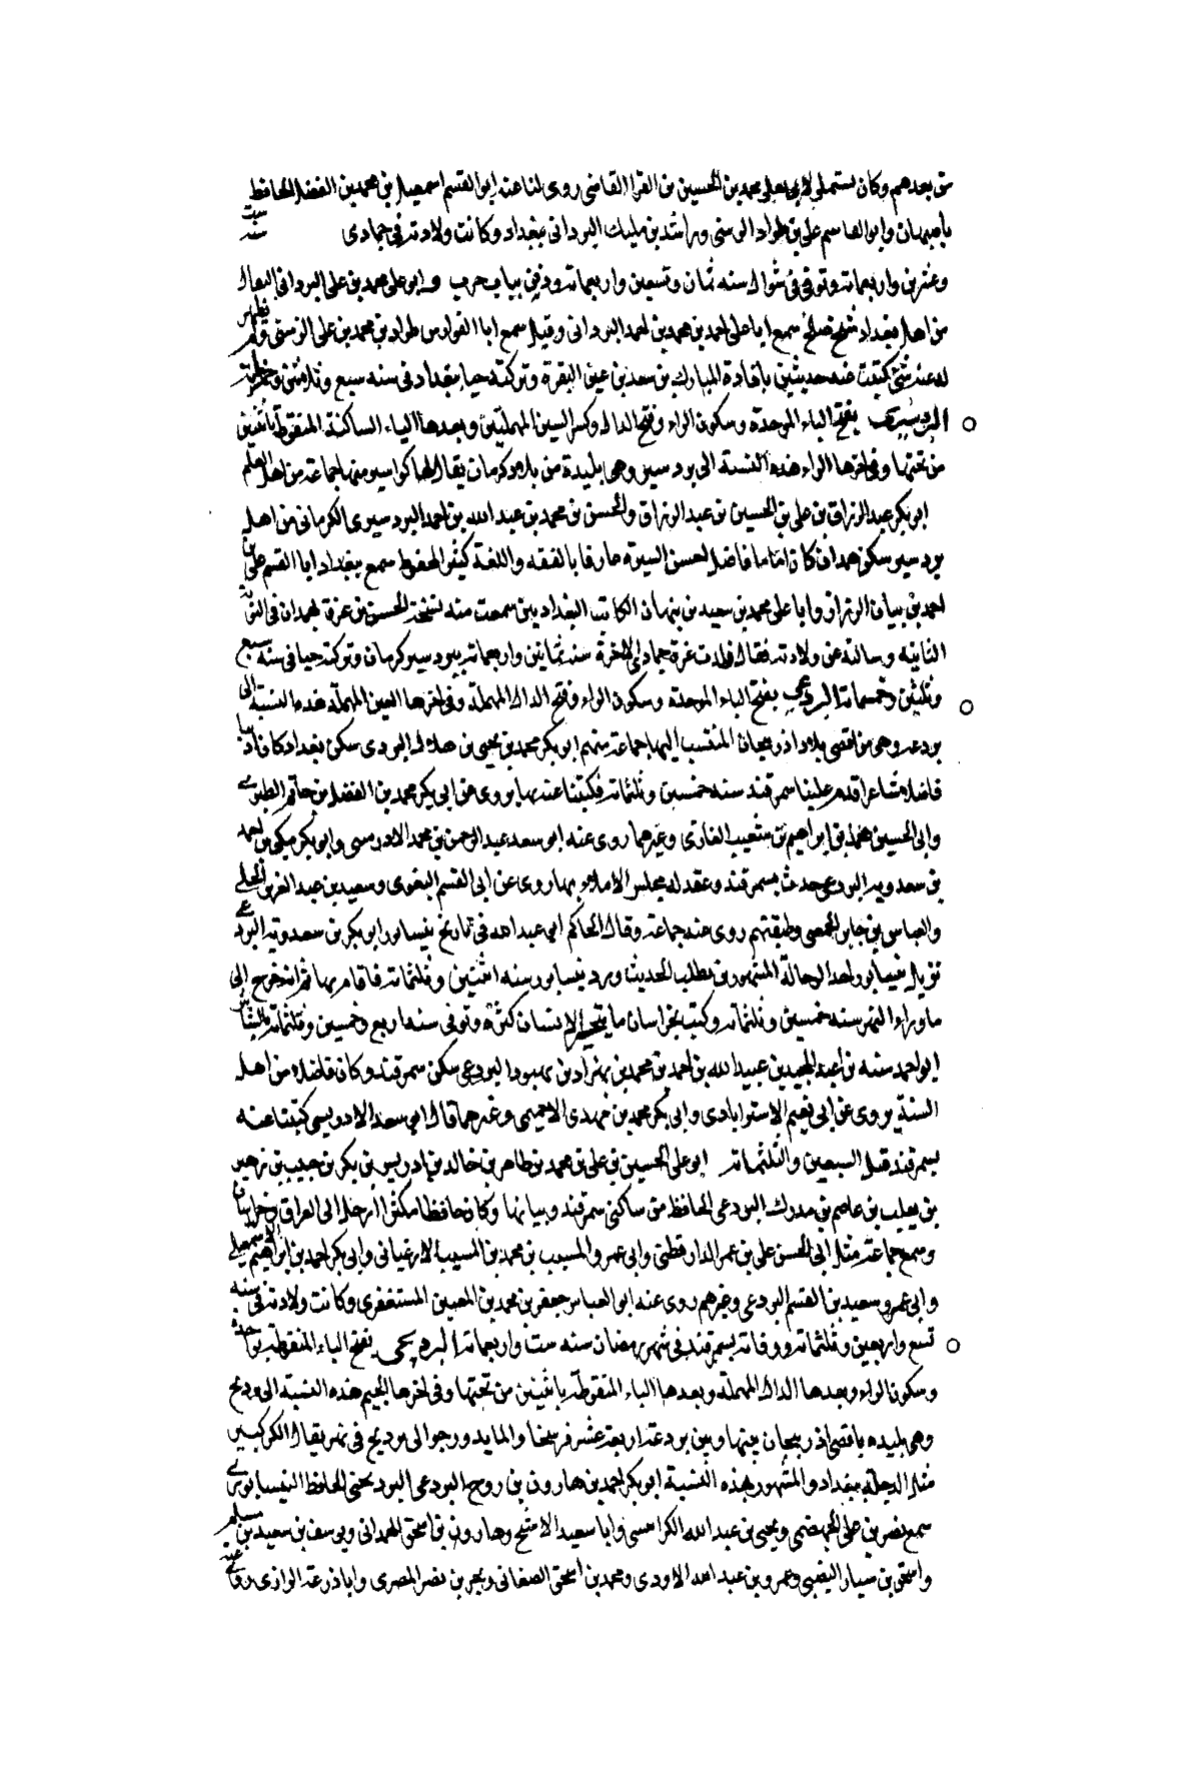 من بعدهم وكان يستملي لابي يعلى محمد بن الحسين بن الفرا القاضي روى لنا عنه ابو القسم اسمعيل بن محمد بن الفضل الحافظ
باصبهان وابو القاسم علي بن طراد الزينبي وراشد بن مليك البرداني ببغداد وكانت ولادته في جمادى سنة ست
وعشرين واربعمائة وتوفي في شوال سنه ثمان وتسعين واربعمائة ودفن بباب حرب وابو علي محمد بن علي البرداني البقال
من اهل بغداد شيخ صالح سمع ابا علي احمد بن محمد بن احمد البرداني وقيل سمع ابا الفوارس طراد بن محمد بن علي الزينبي ولم يظهر
له عنه شئ كتبت عنه حديثين بافادة المبارك بن سعد بن عين البقرة وتركته حيا ببغداد في سنه سبع وثلاثين وخمسمائة
البردسيري بفتح الباء الموحدة وسكون الراء وفتح الدال وكسر السين المهملتين وبعدها الياء الساكنة المنقوطة باثنتين
من تحتها وفي اخرها الراء هذه النسبة الى بردسير وهي بليدة من بلاد كرمان يقال لها كواسير ومنها جماعة من اهل العلم
ابو بكر عبد الرزاق بن علي بن الحسين بن عبد الرزاق والحسن بن محمد بن عبد الله بن احمد البردسيري الكرماني من اهل
بردسير سكن همدان كان اماما فاضلا حسن السيرة عارفا بالفقه واللغة كثير المحفوظ سمع ببغداد ابا القسم علي بن
احمد بن بيان الرزاز وابا علي محمد بن سعيد بن نبهان الكاتب البغداديين سمعت منه نسخة الحسن بن عرفة بهمدان في النوبة
الثانية وسالته عن ولادته فقال ولدت غرة جمادى الاخرة سنه ثمانين واربعمائة ببردسير كرمان وتركته حيا في سنه سبع
وثلثين وخمسمائة البردعي بفتح الباء الموحدة وسكون الراء وفتح الدال المهملة وفي اخرها العين المهملة هذه النسبة الى
بردعه وهي من اقصى بلاد اذربيجان المنتسب اليها جماعة منهم ابو بكر محمد بن يحيى بن هلال البردعي سكن بغداد كان اديبا
فاضلا شاعرا قدم علينا سمرقند سنه خمسين وثلثمائة فكتبنا عنه بها يروي عن ابي بكر محمد بن الفضل بن حاتم الطبري
وابي الحسين محمد بن ابراهيم بن شعيب الغازي وغيرهما روى عنه ابو سعد عبد الرحمن بن محمد الادريسي وابو بكر مكي بن احمد
بن سعدويه البردعي حدث بسمرقند وعقد له مجلس الاملاء بها روى عن ابي القسم البغوي وسعيد بن عبد العزيز الحلبي
والعباس بن جابر الحمصي وطبقتهم روى عنه جماعة وقال الحاكم ابي عبد الله في تاريخ نيسابور ابو بكر بن سعدويه البردعي
نزيل نيسابور احد الرحالة المشهورين بطلب الحديث ورد نيسابور سنه اثنتين وثلثمائة فاقام بها ثم انه خرج الى
ما وراء النهر سنه خمسين وثلثمائة وكتب بخراسان ما يتحير الانسان كثرة وتوفي سنه اربع وخمسين وثلثمائة بالشاش
ابو احمد بن عبد المجيد بن عبيد الله بن احمد بن محمد بن بهزاد بن مهبود البردعي سكن سمرقند وكان فاضلا من اهل
السنة يروي عن ابي نعيم الاستراباذي وابي بكر محمد بن مهدي وغيرهما قال ابي سعد الادريسي كتبنا عنه
بسمرقند قبل السبعين والثلثمائة ابو علي الحسين بن علي بن محمد بن طاهر بن خالد بن ادريس بن بكر بن حبيب بن زهير
بن عاصم بن مدرك البردعي الحافظ من ساكني سمرقند وكان حافظا مكثرا رحل الى العراق وخراسان
وسمع جماعة مثل ابي الحسن علي بن عمر الدارقطني وابي عمرو المسيب بن محمد بن المسيب الارغياني وابي بكر احمد بن ابراهيم الاسمعيلي
وابي عمرو سعيد بن القسم البردعي وغيرهم روى عنه ابو العباس جعفر بن محمد بن المعين المستغفري وكانت ولادته في سنه
تسع واربعين وثلثمائة ووفاته بسمرقند في شهر رمضان سنه ست واربعمائة البرديجي بفتح الباء المنقوطة بواحدة
وسكون الراء وبعدها الدال المهملة وبعدها الياء المنقوطة باثنتين من تحتها وفي اخرها الجيم هذه النسبة الى برديج
وهي بليده باقصى اذربيجان بينها وبين بردعة اربعة عشر فرسخا والما يدور حوالى برديج في نهر يقال الكر كبير
مثل الدجلة ببغداد والمشهور بهذه النسبة ابو بكر احمد بن هارون بن روح البردعي البرديجي الحافظ النيسابوري
سمع نصر بن علي الجهضمي ويحيى بن عبد الله الكرابيسي وابا سعيد الاشج وهارون بن اسحق الهمداني ويوسف بن سعيد بن مسلم
واسحق بن سيار النصيبي وعمرو بن عبد الله الاودي ومحمد بن اسحق الصغاني وبحر بن نصر المصري وابا زرعة الرازي